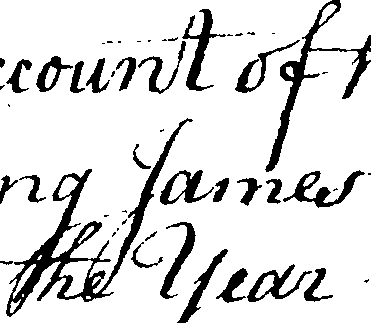 ccount of
ng James
the Year